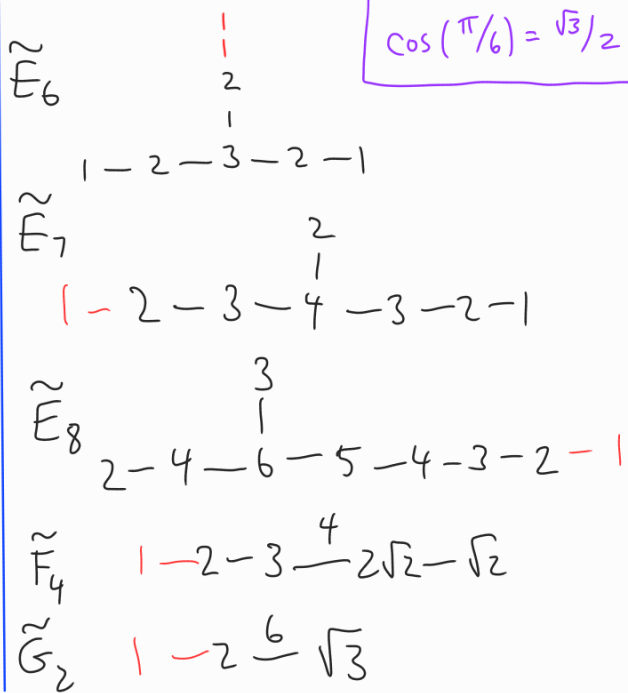 1
cos(π/6) = √3/2
Ẽ₆
2
1 – 2 – 3 – 2 – 1
Ẽ₇
2
1 – 2 – 3 – 4 – 3 – 2 – 1
Ẽ₈
3
2 – 4 – 6 – 5 – 4 – 3 – 2 – 1
F̃₄
4
1 – 2 – 3 – 2√2 – √2
G̃₂
6
1 – 2 – √3